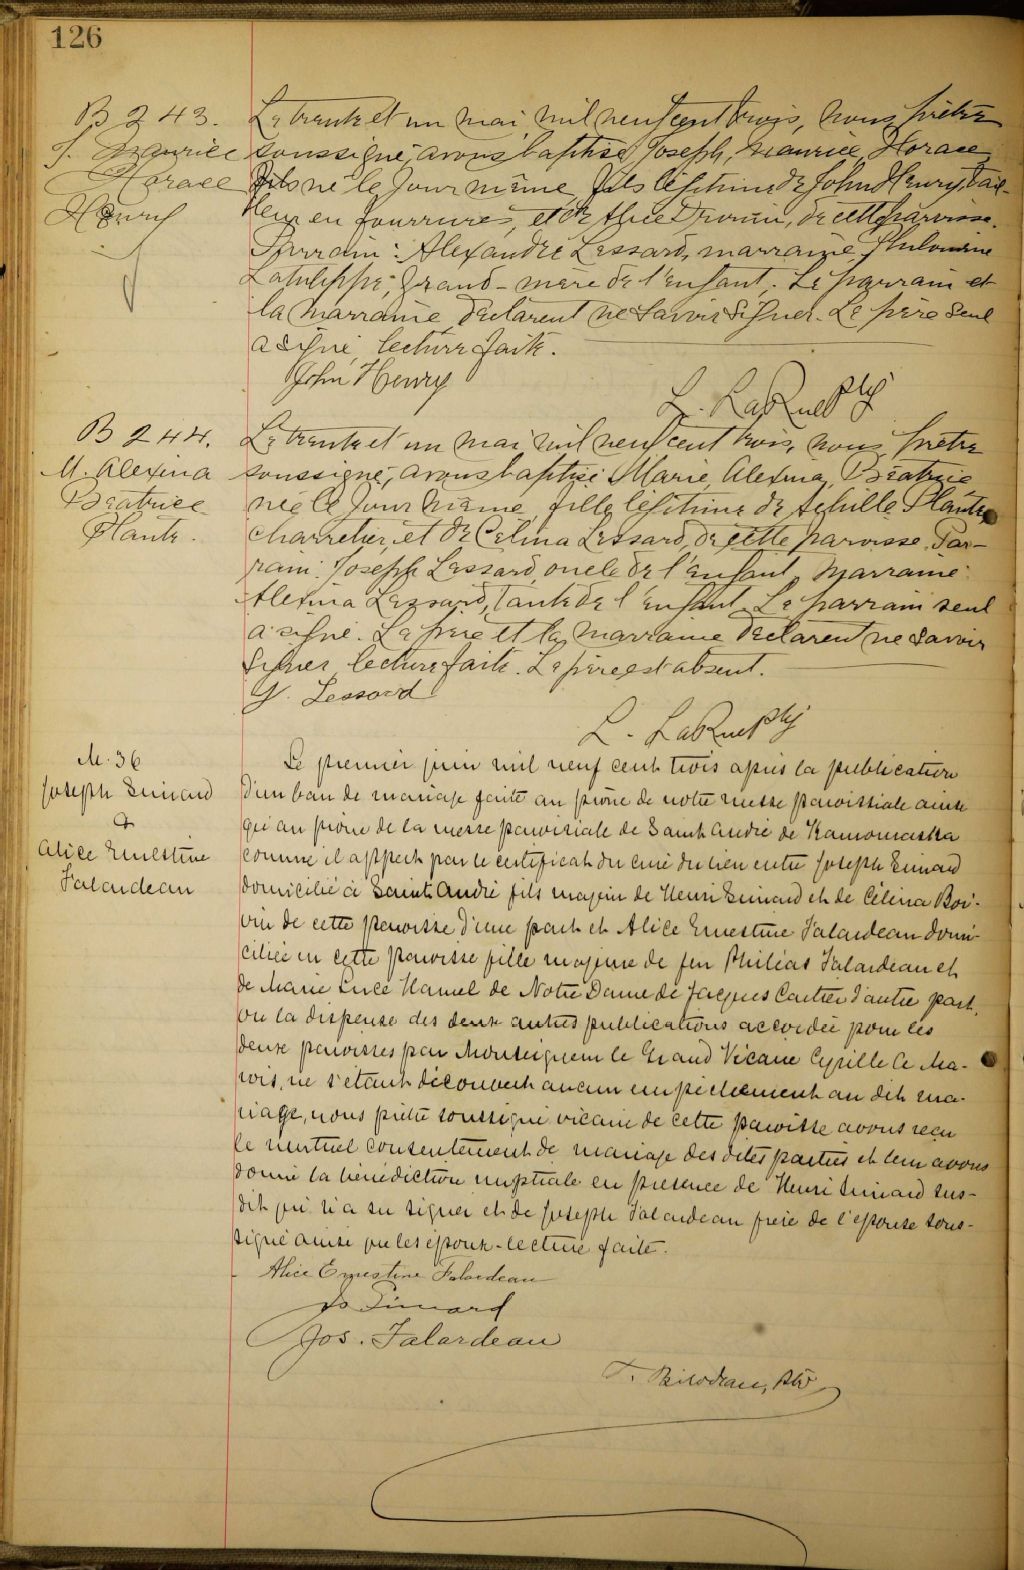 126
B 243.
J. Maurice
Horace
Henry
Le trente et un mai mil neuf cent trois, nous, prêtre
soussigné, avons baptisé Joseph, Maurice, Horace,
né le jour même, fils légitime de John Henry, tail-
leur en fourrures, et de Alice Drouin, de cette paroisse.
Parrain: Alexandre Lessard, marraine, Philomène
Latulippe, grand-mère de l'enfant. Le parrain et
la marraine déclarent ne savoir signer. Le père seul
a signé, lecture faite.
John Henry
L. LaRue Ptre
B 244.
M. Alexina
Béatrice
Plante.
Le trente et un mai mil neuf cent trois, nous, prêtre
soussigné, avons baptisé Marie, Alexina, Béatrice
née le jour même, fille légitime de Achille Plante,
charretier, et de Célina Lessard, de cette paroisse. Par-
rain: Joseph Lessard, oncle de l'enfant, Marraine:
Alexina Lessard, tante de l'enfant. Le parrain seul
a signé. Le père et la marraine déclarent ne savoir
signer, lecture faite. Le père est absent.
J. Lessard
L. LaRue Ptre
M. 36
Joseph Simard
&
Alice Ernestine
Falardeau
Le premier juin mil neuf cent trois après la publication
d'un ban de mariage faite au prône de notre messe paroissiale ainsi
qu'au prône de la messe paroissiale de Saint André de Kamouraska
comme il appert par le certificat du curé du lieu entre Joseph Simard
domicilié à Saint André fils majeur de Henri Simard et de Célina Boi-
vin de cette paroisse d'une part et Alice Ernestine Falardeau domi-
ciliée en cette paroisse fille majeure de feu Philéas Falardeau et
de Marie Luce Hamel de Notre Dame de Jacques Cartier d'autre part,
vu la dispense des deux autres publications accordée pour les
deux paroisses par Monseigneur le Grand Vicaire Cyrille E. Ma-
rois, ne s'étant découvert aucun empêchement au dit ma-
riage, nous prêtre soussigné vicaire de cette paroisse avons reçu
le mutuel consentement de mariage des dites parties et leur avons
donné la bénédiction nuptiale en présence de Henri Simard sus-
dit qui n'a su signer et de Joseph Falardeau frère de l'épouse sous-
signé ainsi que les époux - lecture faite.
Alice Ernestine Falardeau
Jos Simard
Jos. Falardeau
Bilodeau, Ptre